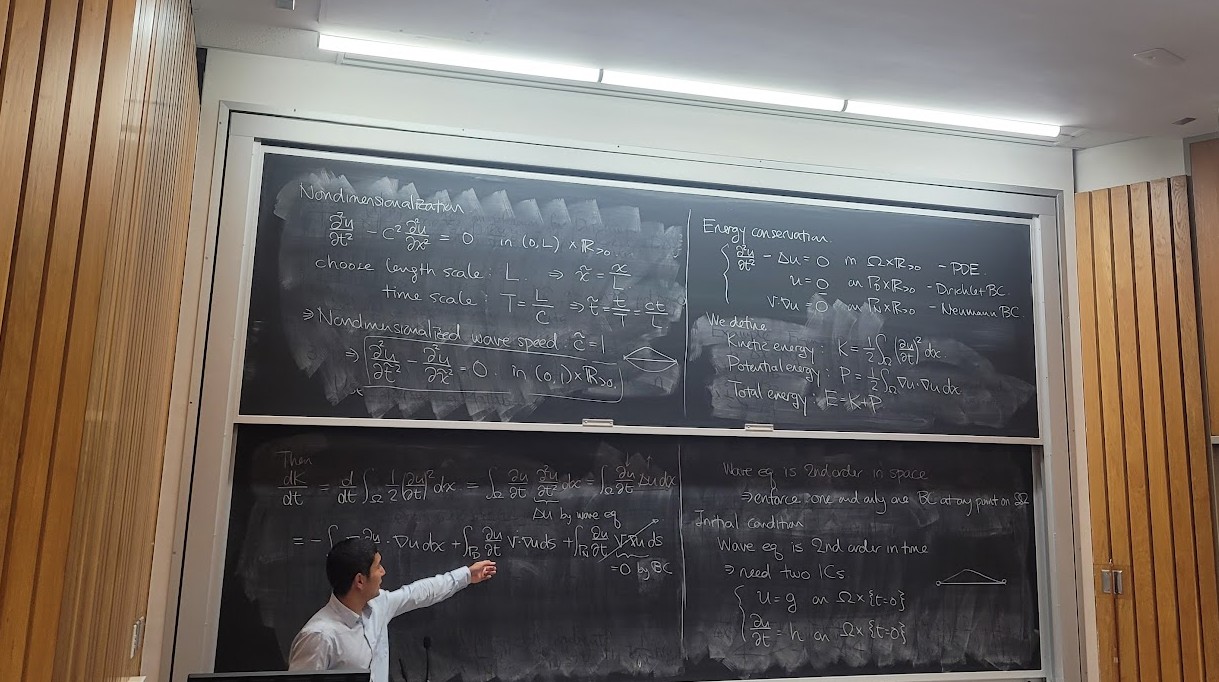 Nondimensionalization
∂²u/∂t² - C² ∂²u/∂x² = 0 in (0,L) × ℝ>0
choose length scale: L ⇒ x̃ = x/L
time scale: T = L/C ⇒ t̃ = t/T = ct/L
⇒ Nondimensionalized wave speed: c̃ = 1
⇒ ∂²u/∂t̃² - ∂²u/∂x̃² = 0 in (0,1) × ℝ>0
Energy conservation.
∂²u/∂t² - Δu = 0 in Ω×ℝ>0 - PDE.
u = 0 on Γ_D×ℝ>0 - Dirichlet BC.
ν·∇u = 0 on Γ_N×ℝ>0 - Neumann BC.
We define
Kinetic energy: K = 1/2 ∫_Ω (∂u/∂t)² dx
Potential energy: P = 1/2 ∫_Ω ∇u·∇u dx
Total energy: E = K+P
Then
dK/dt = d/dt ∫_Ω 1/2 (∂u/∂t)² dx = ∫_Ω ∂u/∂t ∂²u/∂t² dx = ∫_Ω ∂u/∂t Δu dx
Δu by wave eq
= - ∫ ∂u · ∇u dx + ∫_Γ_D ∂u/∂t ν·∇u ds + ∫_Γ_N ∂u/∂t ν·∇u ds
= 0 by BC
Wave eq is 2nd order in space
⇒ enforce one and only one BC at any point on ∂Ω
Initial condition
Wave eq is 2nd order in time
⇒ need two ICs
u = g on Ω×{t=0}
∂u/∂t = h on Ω×{t=0}